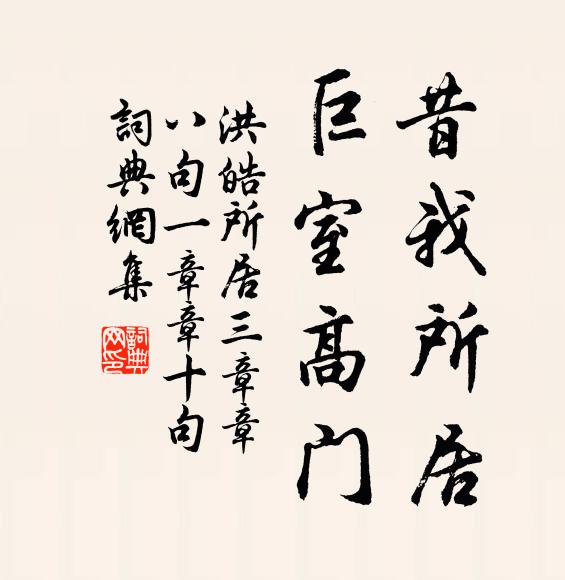 昔我所居
巨室高门
洪皓所居三章章
八句一章章十句
詞典網集
詞典網印